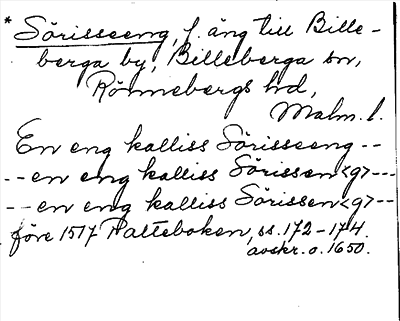 * Sörisseeng, f. äng till Bille-
berga by, Billeberga sn,
Rönnebergs hd,
Malm. l.
En eng kalliss Sörisseeng --
-- en eng kalliss Sörissen<g> ---
-- en eng kalliss Sörissen<g> --
före 1517 Palteboken, ss. 172-174.
avskr. o. 1650.